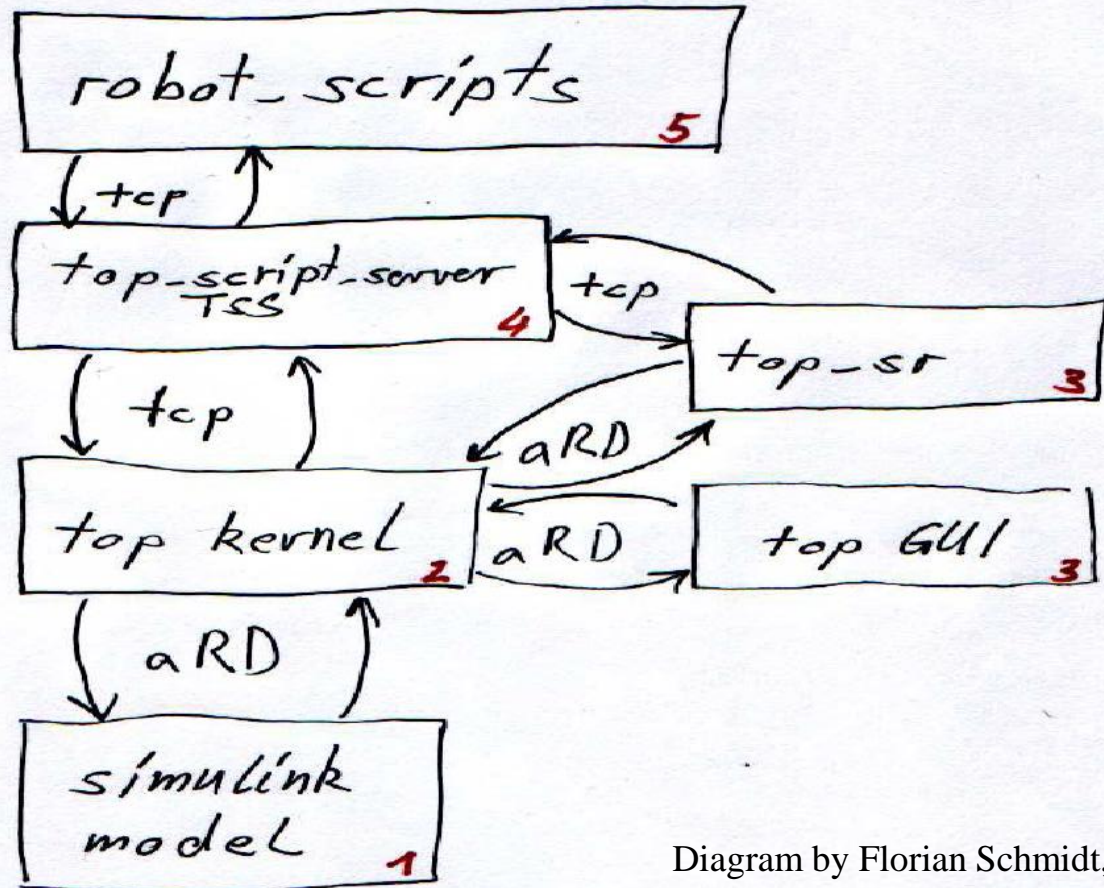 robot_scripts
5
tcp
top_script_server
TSS
4
tcp
top_sr
3
tcp
aRD
top kernel
2
aRD
top GUI
3
aRD
simulink
model
1
Diagram by Florian Schmidt,